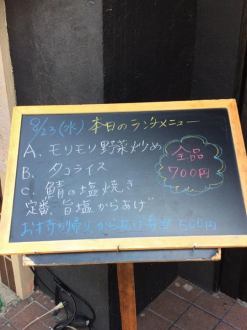 8/23(水) 本日のランチメニュー
A. モリモリ野菜炒め
B. タコライス
C. 鯖の塩焼き
定番 旨塩からあげ
お持ち帰りからあげ弁当 500円
全品
700円